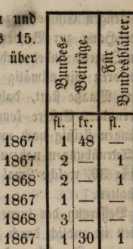 n und
s 15.
über
Bundes-
Beiträge.
Für
Bundesblätter.
fl. kr. fl.
1867 1 48 —
1867 2 — 1
1868 2 — 1
1867 1 — —
1868 3 — —
1867 1 30 1